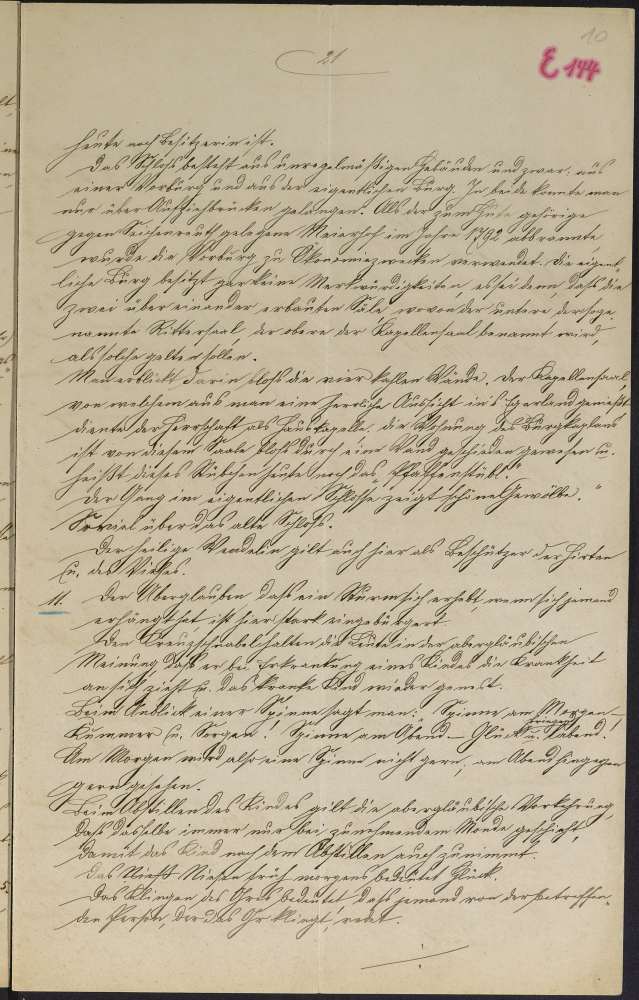 10
21
E 144
heute noch Besitzerin ist.
Das Schloß besteht aus unregelmäßigen Gebäuden und zwar: aus
einer Vorburg und aus der eigentlichen Burg. In beide konnte man
nur über Aufziehbrücken gelangen. Als der zum Gute gehörige
gegen Seichenreuth gelegene Maierhof im Jahre 1792 abbrannte
wurde die Vorburg zu Ökonomiezwecken verwendet. Die eigent-
liche Burg besitzt gar keine Merkwürdigkeiten, es sei denn, daß die
zwei über einander erbauten Säle, wovon der untere der soge-
nannte Rittersaal, der obere der Kapellensaal benannt wird,
als solche gelten sollen.
Man erblickt darin bloß die vier kahlen Wände. Der Kapellensaal,
von welchem aus man eine herrliche Aussicht in's Egerland genießt
diente der Herrschaft als Hauskapelle. die Wohnung des Burgkaplans
ist von diesem Saale bloß durch eine Wand geschieden gewesen u.
heißt dieses Stübchen heute noch das "Pfaffenstübl."
Der Gang im eigentlichen Schlosse zeigt schöne Gewölbe."
Soviel über das alte Schloß.
Der heilige Wendelin gilt auch hier als Beschützer der Hirten
u. des Viehes.
11. Der Aberglauben daß ein Sturm sich erhebt wenn sich jemand
erhängt hat ist hier stark eingebürgert.
Den Kreuzschnabel halten die Leute in der abergläubischen
Meinung, daß er bei Erkrankung eines Kindes die Krankheit
an sich zieht u. das kranke Kind wieder genest.
Beim Anblick einer Spinne sagt man: Spinne am Morgen-
Kummer u. Sorgen! Spinne am Abend - Glück u. Labend!
Am Morgen wird also eine Spinne nicht gern, am Abend hingegen
gern gesehen.
Beim Abstillen des Kindes gilt die abergläubische Vorkehrung,
daß dasselbe immer nur bei zunehmendem Monde geschieht,
damit das Kind nach dem Abstillen auch zunimmt.
Das Niesen früh morgens bedeutet Glück.
Das Klingen des Ohres bedeutet, daß jemand von der betreffen-
den Person, der das Ohr klingt, redet.